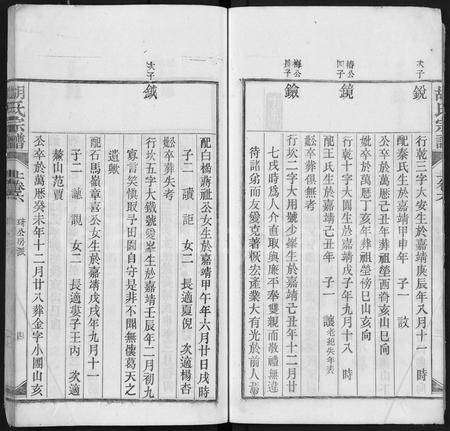 胡氏宗譜
卷六
次子
銳
行乾二字大安生於嘉靖庚辰年八月十一時
配秦氏生於嘉靖甲申年 子一
公卒於萬曆己丑年葬祖塋酉脊亥山巳向
妣卒於萬曆丁亥年葬祖塋傍巳山亥向
梅公四子
鏡
行乾十字大圓生於嘉靖戊子年九月十八 時
配王氏生於嘉靖己丑年 子一 讓老祀失年表
公卒葬俱無考
梅公長子
鐱
行坎二字大用號少 生於嘉靖己丑年十二月廿
七戌時爲人介直取與廉平奉雙親而敬禮無違
待諸弟而友愛克著恢宏產業大有光於前人
配白楊蔣祖公女生於嘉靖甲午年六月廿日戌時
子二 讀 詎 女二 長適夏倪 次適楊杏
公卒葬失考
次子
鉞
行坎五字大鐵號愛 生於嘉靖壬辰年二月初九
寡言笑慎取予田園自守是非不聞無懷葛天之
遺歟
配石馬嶺章喜公女生於嘉靖戊戌年九月十一
子二 謙 諷 女二 長適吳子王丙 次適
鰲山范賈
公卒於萬曆癸未年十二月廿八葬金字小園山亥
胡氏宗譜
卷六
琦公房派
四